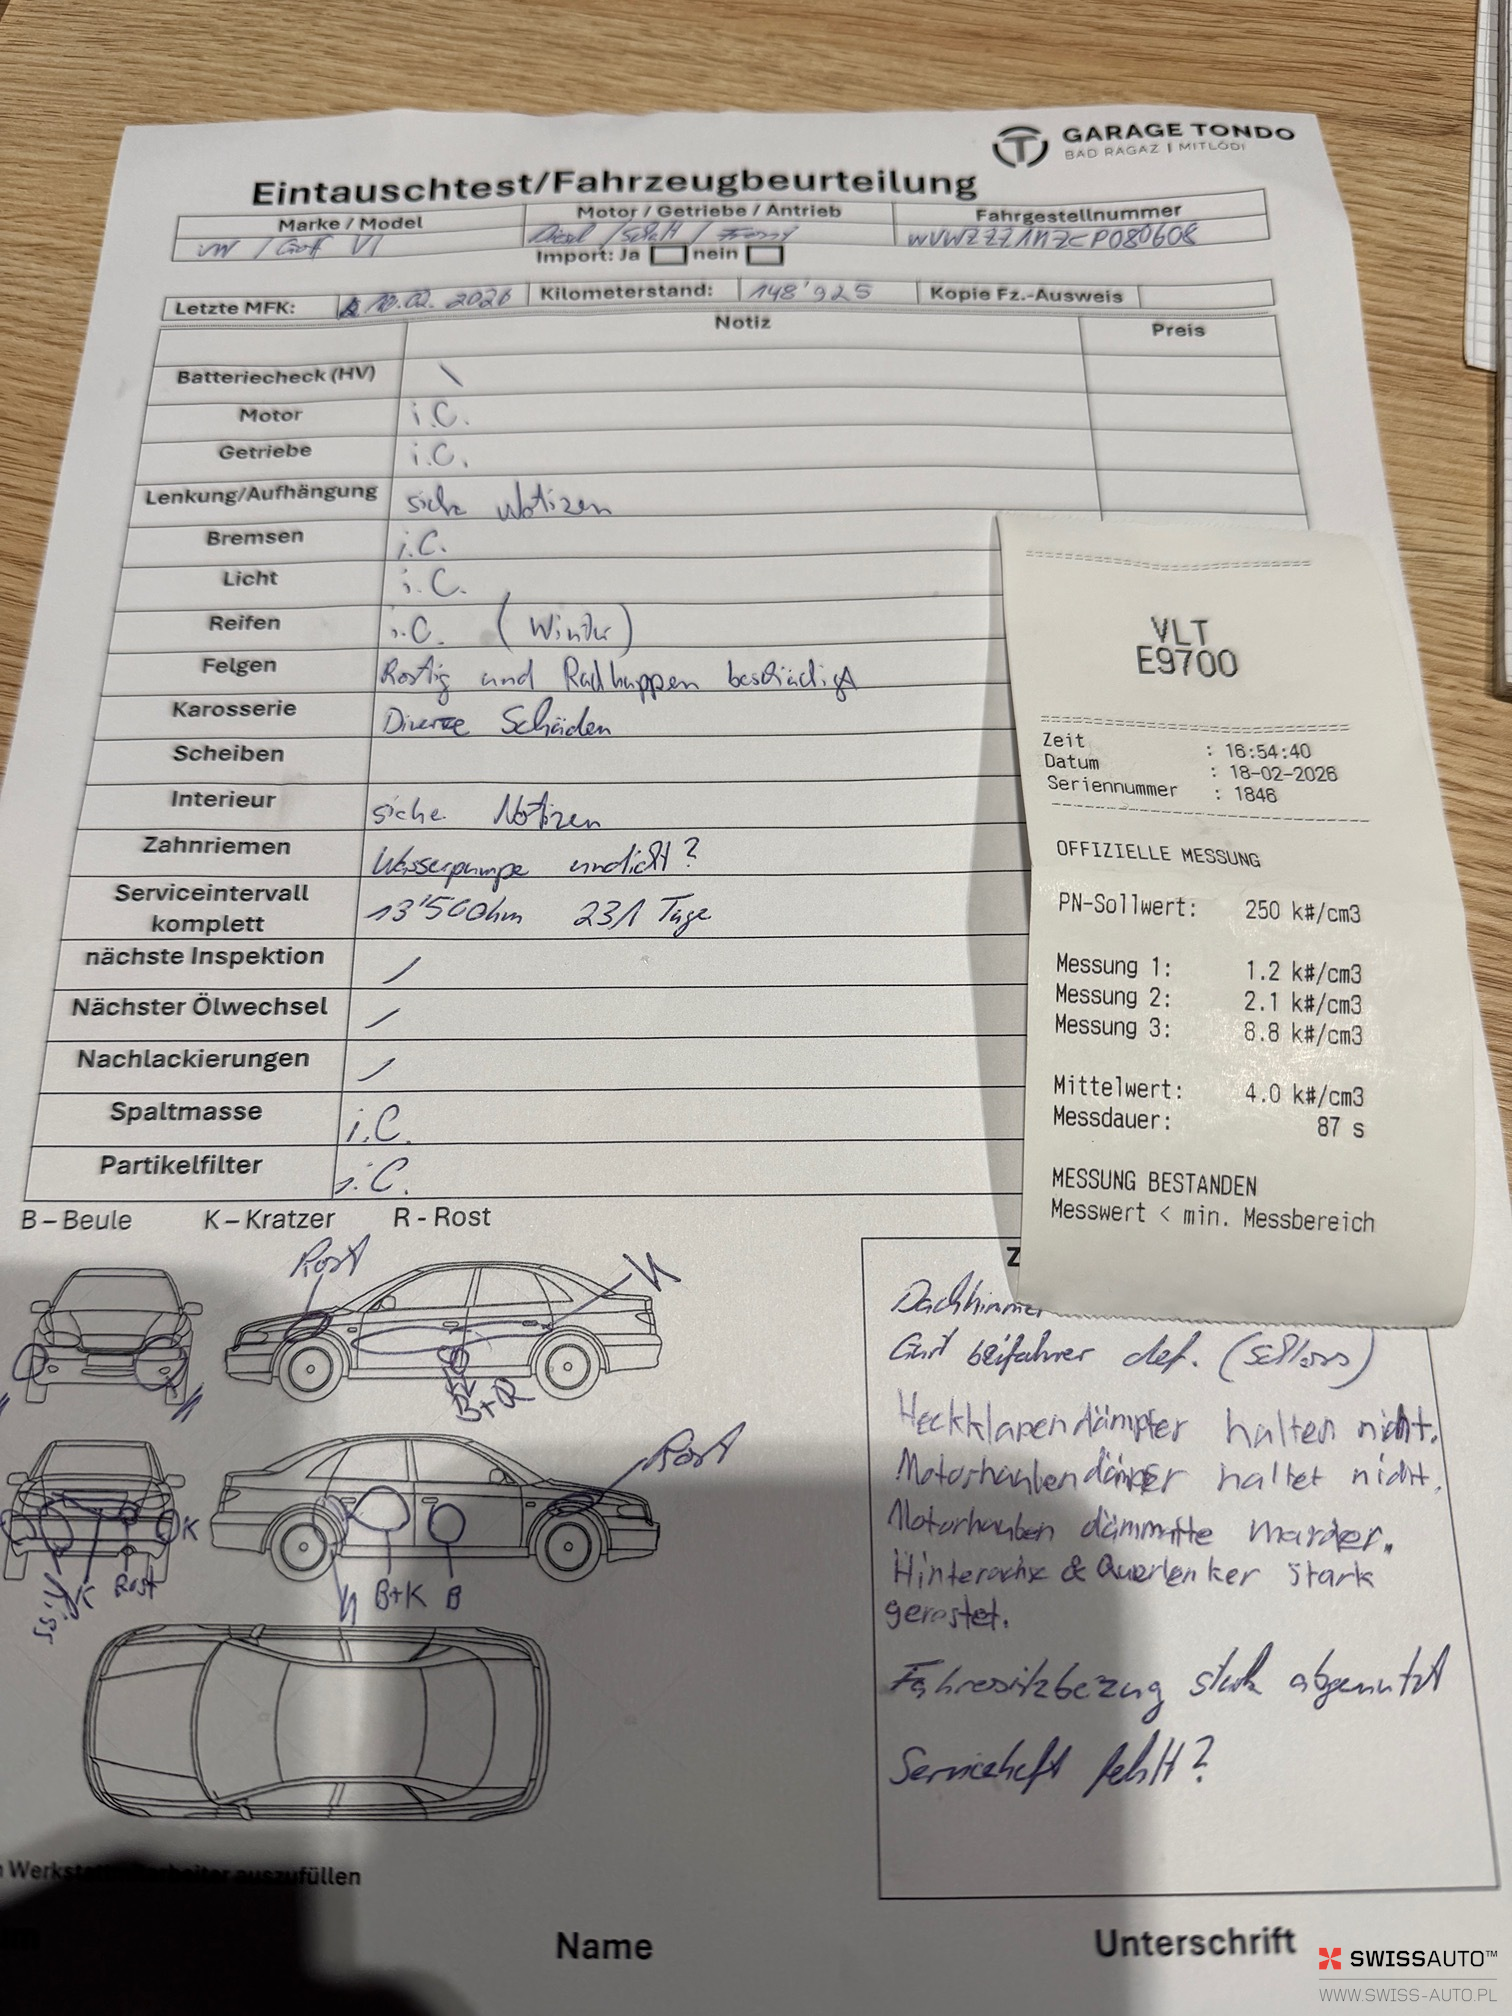 GARAGE TONDO
BAD RAGAZ | MITLÖDI
Eintauschtest/Fahrzeugbeurteilung
Marke / Model Motor / Getriebe / Antrieb Fahrgestellnummer
VW / Golf VI Diesel / Schalt / Front WVWZZZ1KZCP080608
Import: Ja nein
Letzte MFK: 10.02.2026 Kilometerstand: 148'925 Kopie Fz.-Ausweis
Notiz Preis
Batteriecheck (HV) \
Motor i.O.
Getriebe i.O.
Lenkung/Aufhängung siehe Notizen
Bremsen i.O.
Licht i.O.
Reifen i.O. (Winter)
Felgen Rostig und Radkappen beschädigt
Karosserie Diverse Schäden
Scheiben
Interieur siehe Notizen
Zahnriemen Wasserpumpe undicht?
Serviceintervall komplett 13'500km 231 Tage
nächste Inspektion /
Nächster Ölwechsel /
Nachlackierungen /
Spaltmasse i.O.
Partikelfilter i.O.
B – Beule K – Kratzer R - Rost
VLT
E9700
Zeit : 16:54:40
Datum : 18-02-2026
Seriennummer : 1846
OFFIZIELLE MESSUNG
PN-Sollwert: 250 k#/cm3
Messung 1: 1.2 k#/cm3
Messung 2: 2.1 k#/cm3
Messung 3: 8.8 k#/cm3
Mittelwert: 4.0 k#/cm3
Messdauer: 87 s
MESSUNG BESTANDEN
Messwert < min. Messbereich
Rost
K
B+R
K
K
Rost
K
Riss
K
Rost
K
B+K
B
Z
Gurt beifahrer def. (Schloss)
Heckklapendämpfer halten nicht.
Motorhaubendämpfer haltet nicht.
Motorhauben dämmatte Marder.
Hinterachse & Querlenker stark
gerostet.
Fahrersitzbezug stark abgenutzt
Serviceheft fehlt?
auszufüllen
Name
Unterschrift
SWISSAUTO™
WWW.SWISS-AUTO.PL